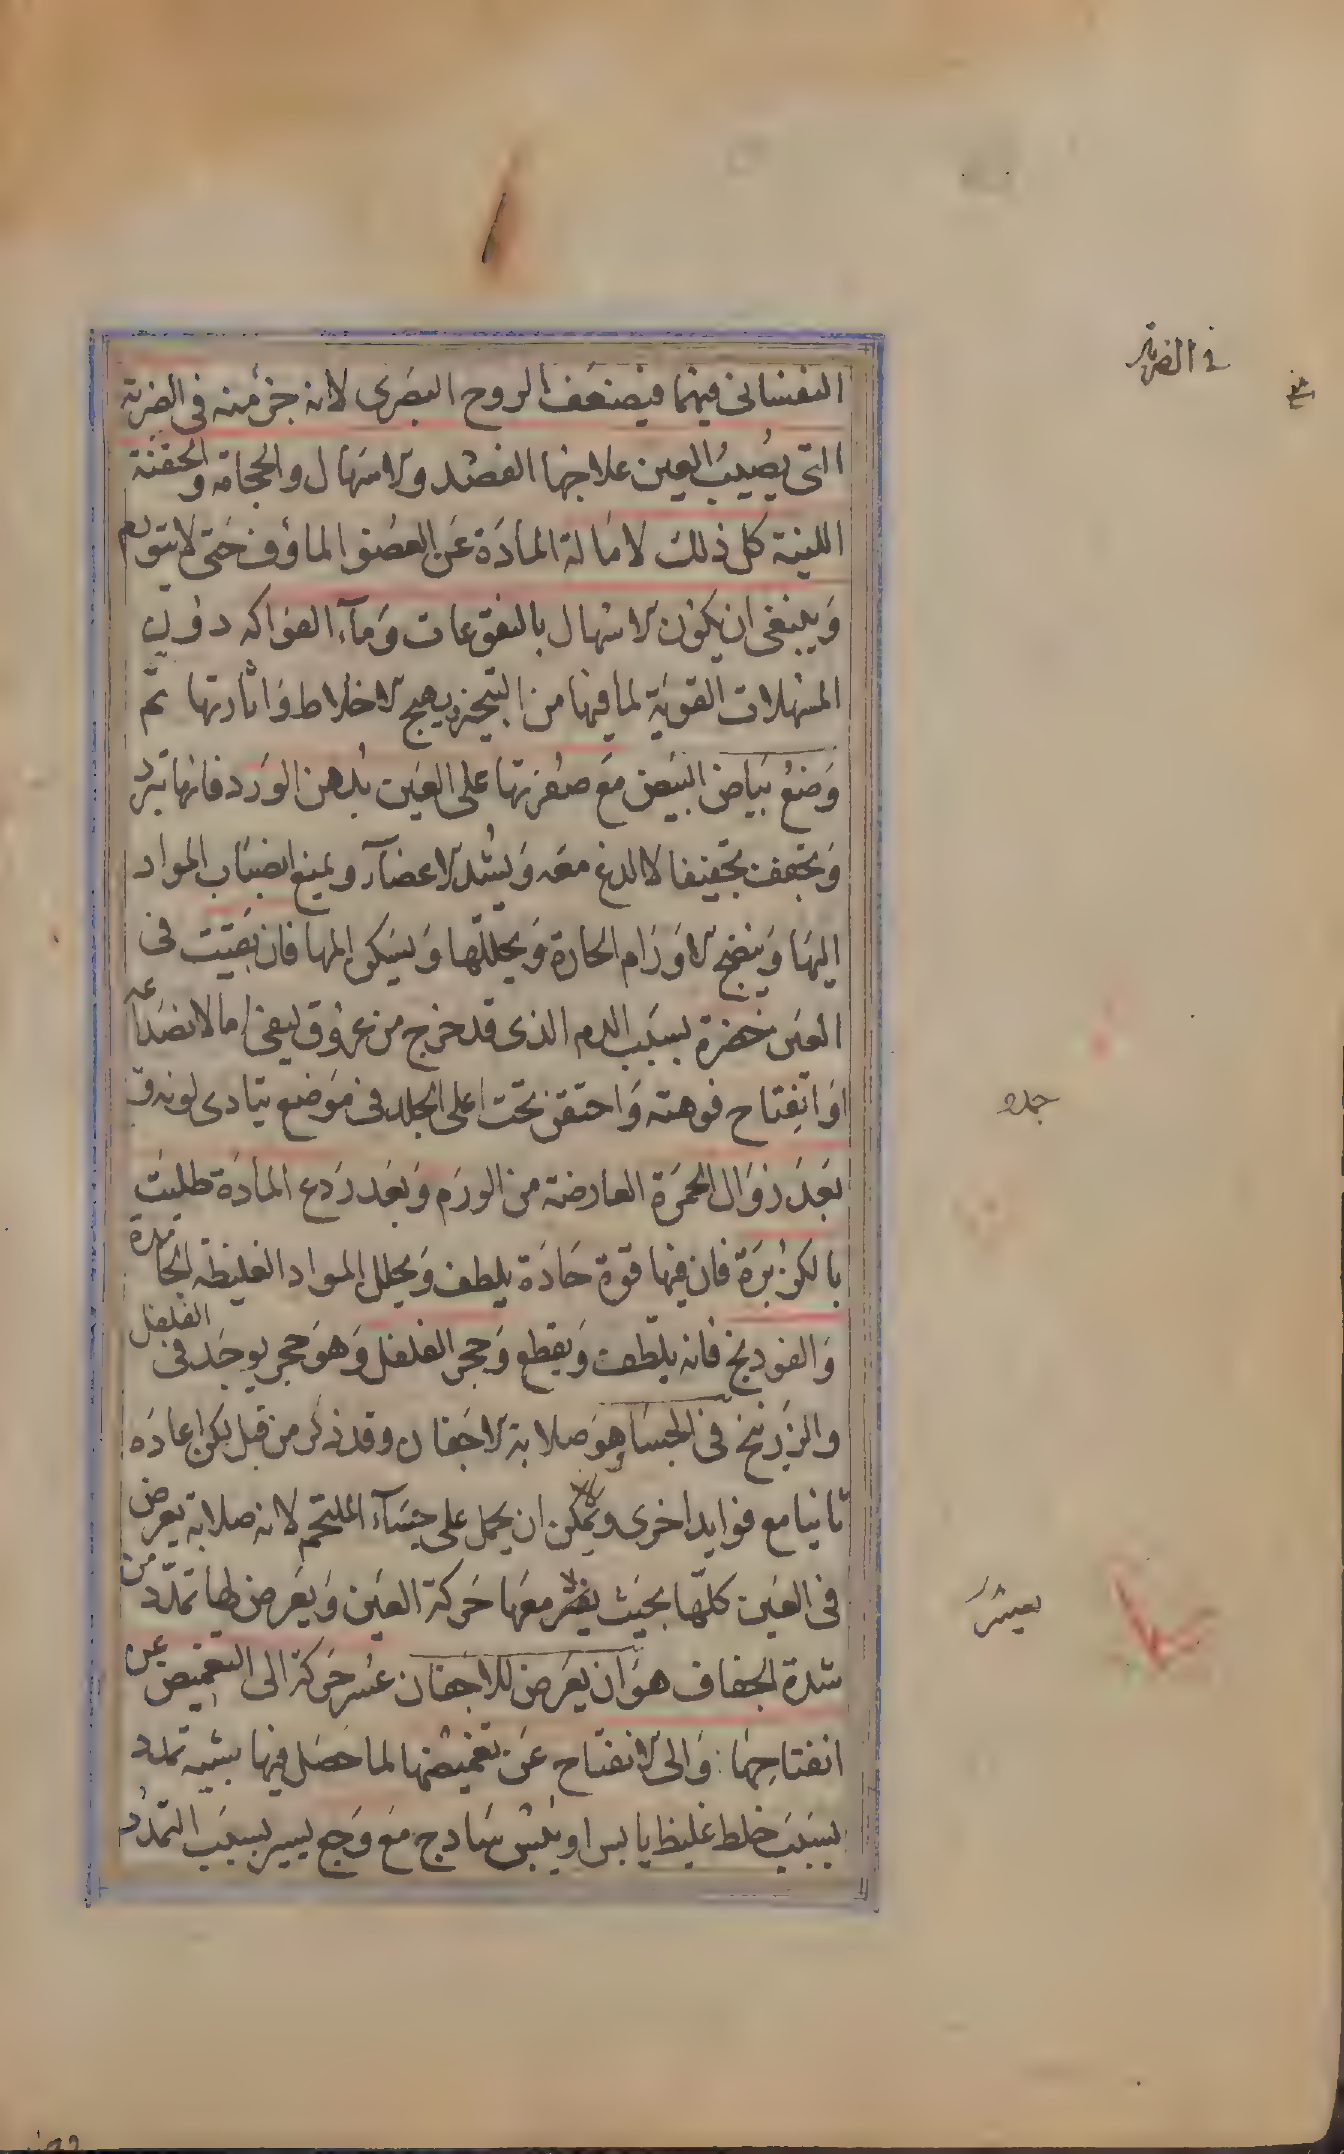 في الضربة
النفسانى فيهما فيضعف الروح البصرى لانه جزء منه فى الضربة
التى يصيب العين علاجها الفصد والاسهال والحجامة والحقنة
اللينة كل ذلك لامالة المادة عن العضو الماؤف حتى لا يتورم
وينبغى ان يكون الاسهال بالنقوعات وماء الفواكه دون
المسهلات القوية لما فيها من التبخير يهيج الاخلاط واثارتها ثم
وضع بياض البيض مع صفرتها على العين بدهن الورد فانها تبرد
وتجفف تجفيفا لا لدغ معه ويشد الاعضاء ويمنع انصباب المواد
اليها وينضج الاورام الحارة ويحللها ويسكن المها فان بقيت فى
العين خضرة بسبب الدم الذى قد خرج من عروق ليفى اما لانصداعه
او انفتاح فوهته واحتقن تحت اعلى الجلد فى موضع يتادى لونه
جلده
بعد زوال الحمرة العارضة من الورم وبعد ردع المادة طليت
بالكزبرة فان فيها قوة حادة يلطف ويحلل المواد الغليظة الجامدة
والفودنج فانه يلطف ويقطع وحجر الفلفل وهو حجر يوجد فى الفلفل
والزرنيخ فى الجسا هو صلابة الاجفان وقد ذكر من قبل لكن اعاده
ثانيا مع فوايد اخرى ويمكن ان يحمل على جساء الملتحم لانه صلابة يعرض
فى العين كلها بحيث يعسر معها حركة العين ويعرض لها تمدد من
يعسر
شدة الجفاف هو ان يعرض للاجفان عسر حركة الى التغميض عن
انفتاحها والى الانفتاح عن تغميضها لما حصل فيها شبيه تمدد
بسبب خلط غليظ يابس او يبس سادج مع وجع يسير بسبب التمدد